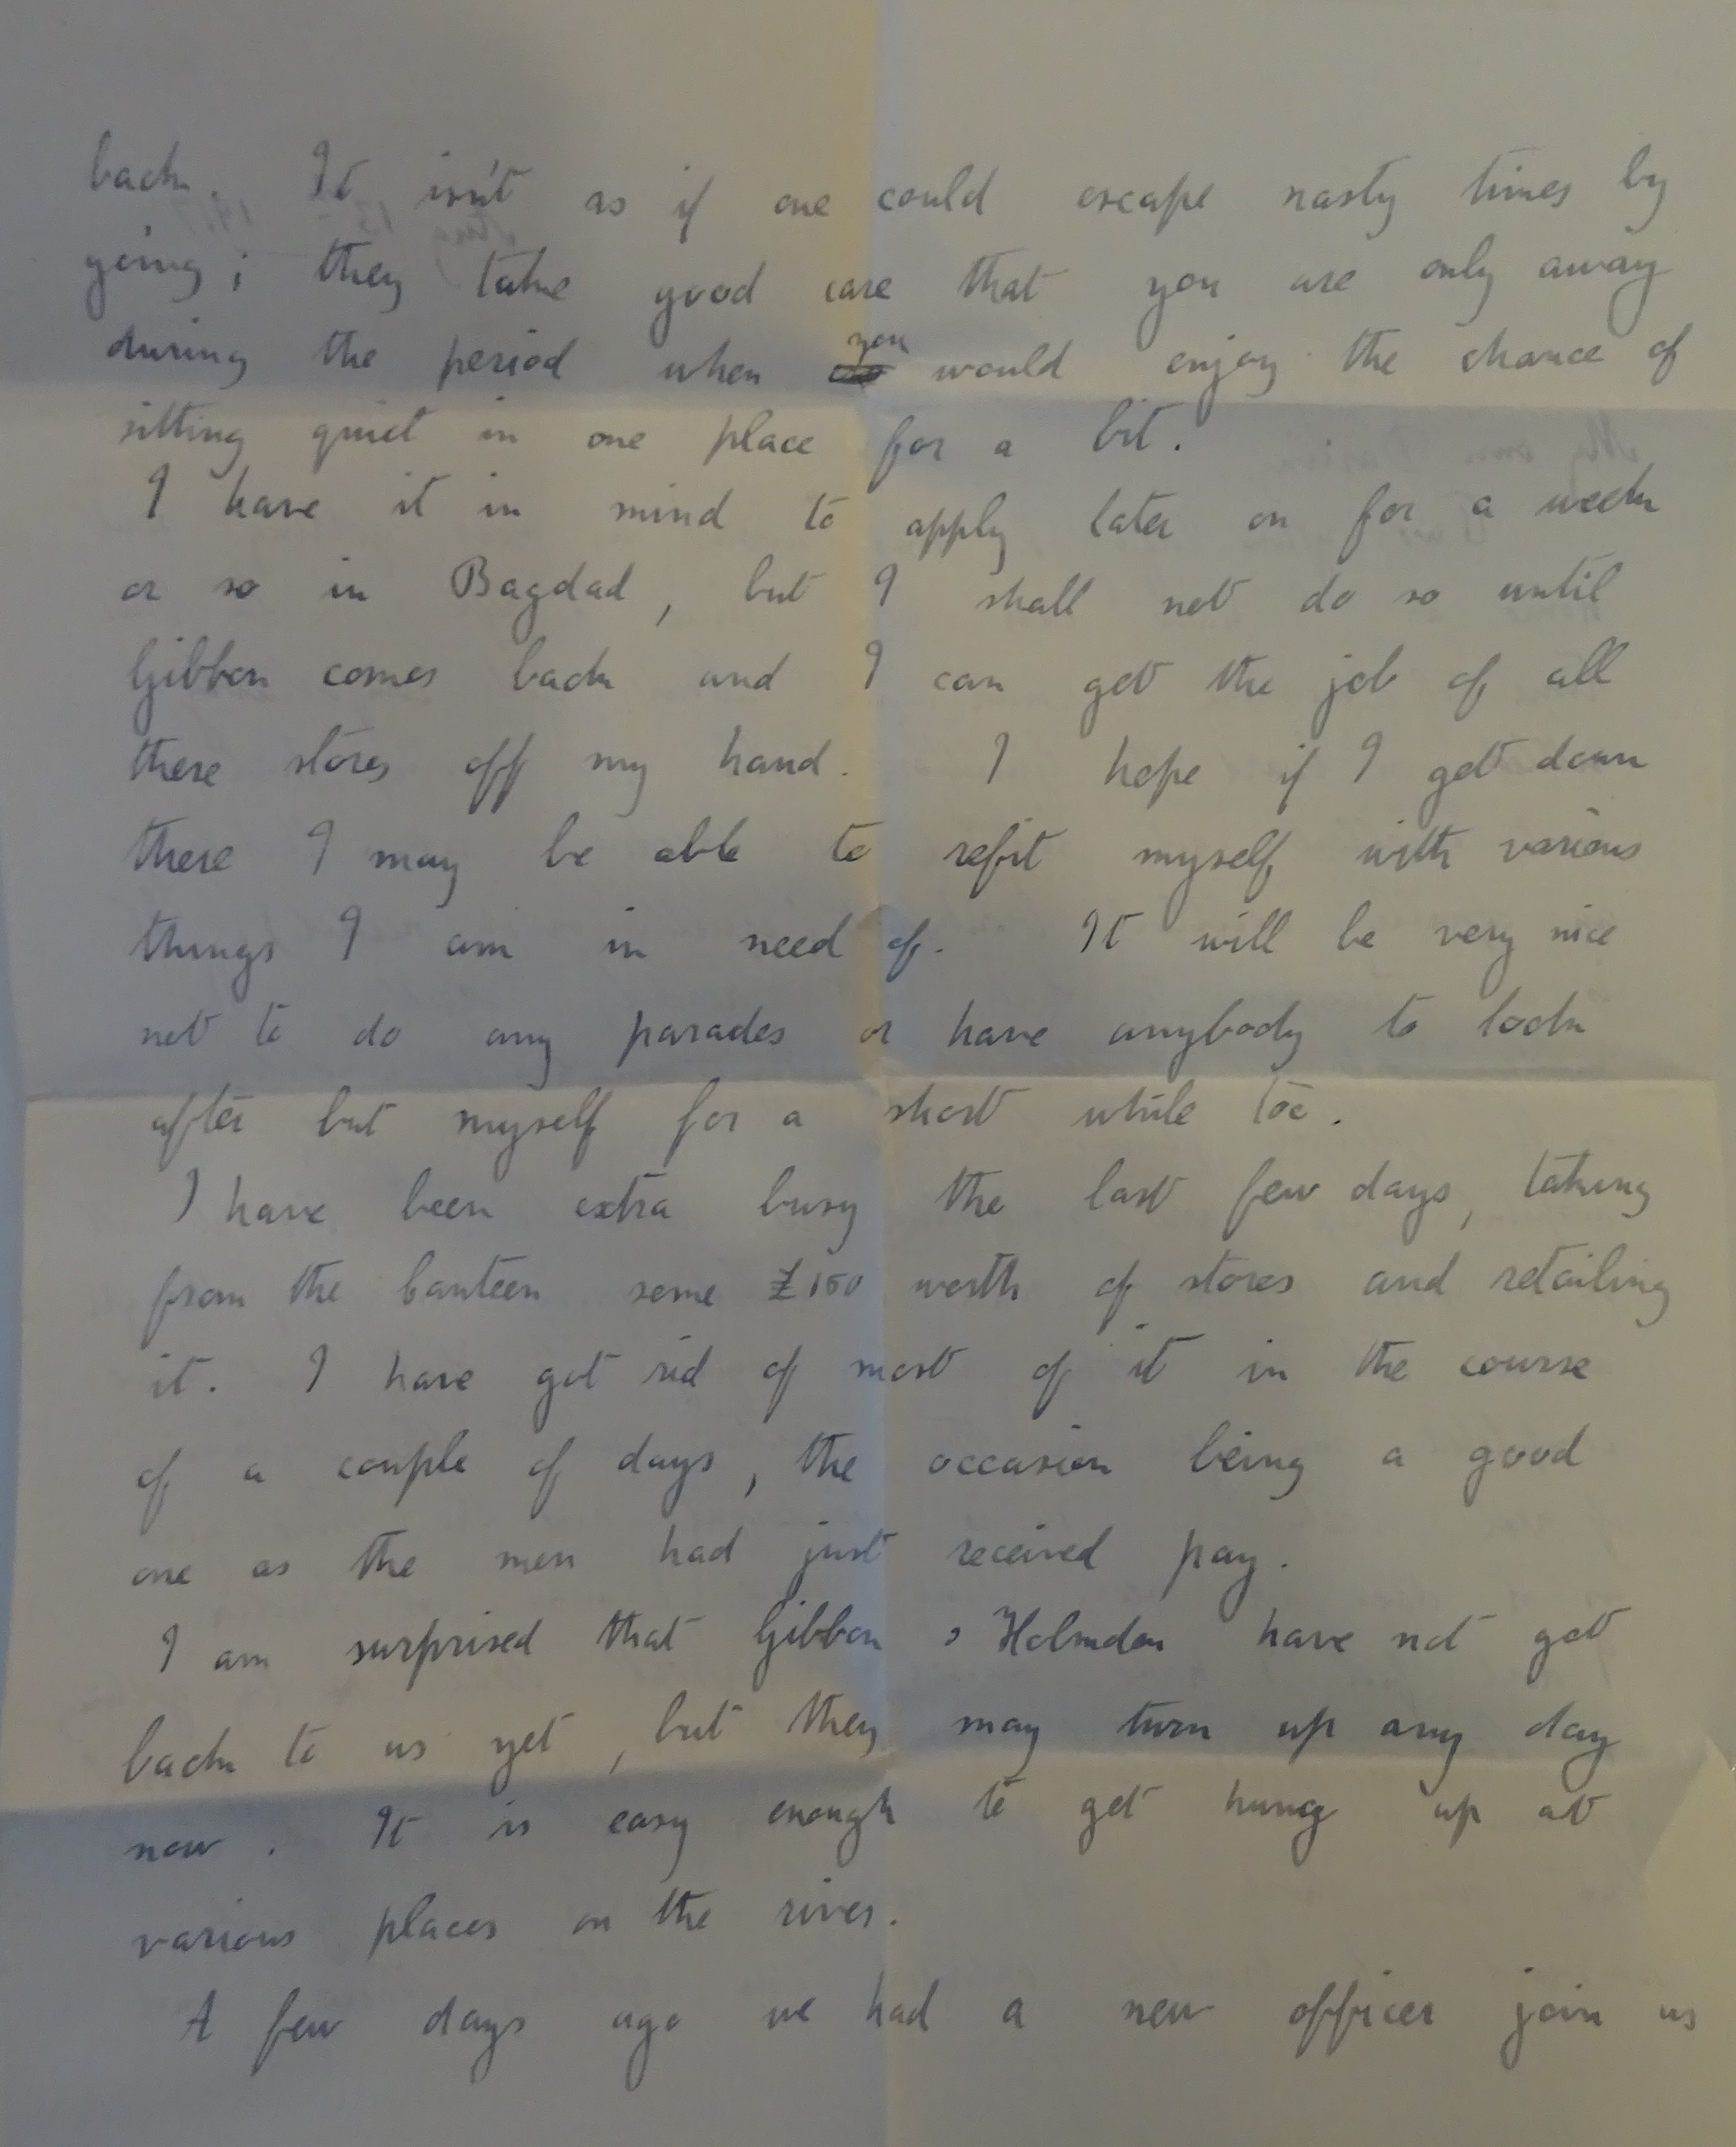 back. It isn't as if one could escape nasty times by
going; they take good care that you are only away
during the period when you would enjoy the chance of
sitting quiet in one place for a bit.
I have it in mind to apply later on for a week
or so in Bagdad, but I shall not do so until
Gibbon comes back and I can get the job of all
these stores off my hand. I hope if I get down
there I may be able to refit myself with various
things I am in need of. It will be very nice
not to do any parades or have anybody to look
after but myself for a short while too.
I have been extra busy the last few days, taking
from the Canteen some £150 worth of stores and retailing
it. I have got rid of most of it in the course
of a couple of days, the occasion being a good
one as the men had just received pay.
I am surprised that Gibbon & Holmden have not got
back to us yet, but they may turn up any day
now. It is easy enough to get hung up at
various places on the river.
A few days ago we had a new officer join us